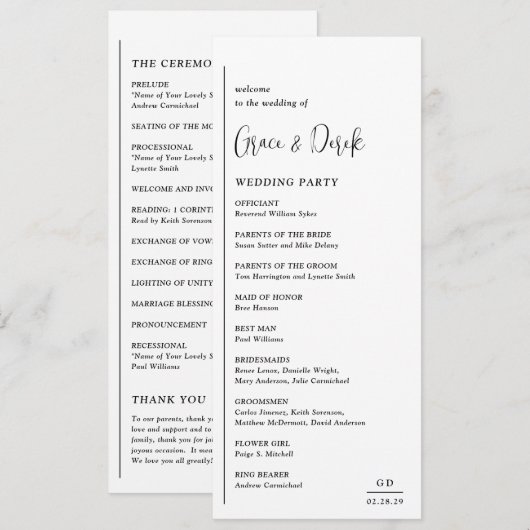 THE CEREMO
PRELUDE
"Name of Your Lovely S
Andrew Carmichael
SEATING OF THE MO
PROCESSIONAL
"Name of Your Lovely S
Lynette Smith
WELCOME AND INVO
READING: 1 CORINT
Read by Keith Sorenson
EXCHANGE OF VOW
EXCHANGE OF RING
LIGHTING OF UNITY
MARRIAGE BLESSING
PRONOUNCEMENT
RECESSIONAL
"Name of Your Lovely S
Paul Williams
THANK YOU
To our parents, thank you
love and support and to
family, thank you for joi
joyous occasion. It mea
We love you all greatly!
welcome
to the wedding of
Grace & Derek
WEDDING PARTY
OFFICIANT
Reverend William Sykes
PARENTS OF THE BRIDE
Susan Sutter and Mike Delany
PARENTS OF THE GROOM
Tom Harrington and Lynette Smith
MAID OF HONOR
Bree Hanson
BEST MAN
Paul Williams
BRIDESMAIDS
Renee Lenox, Danielle Wright,
Mary Anderson, Julie Carmichael
GROOMSMEN
Carlos Jimenez, Keith Sorenson,
Matthew McDermott, David Anderson
FLOWER GIRL
Paige S. Mitchell
RING BEARER
Andrew Carmichael
GD
02.28.29